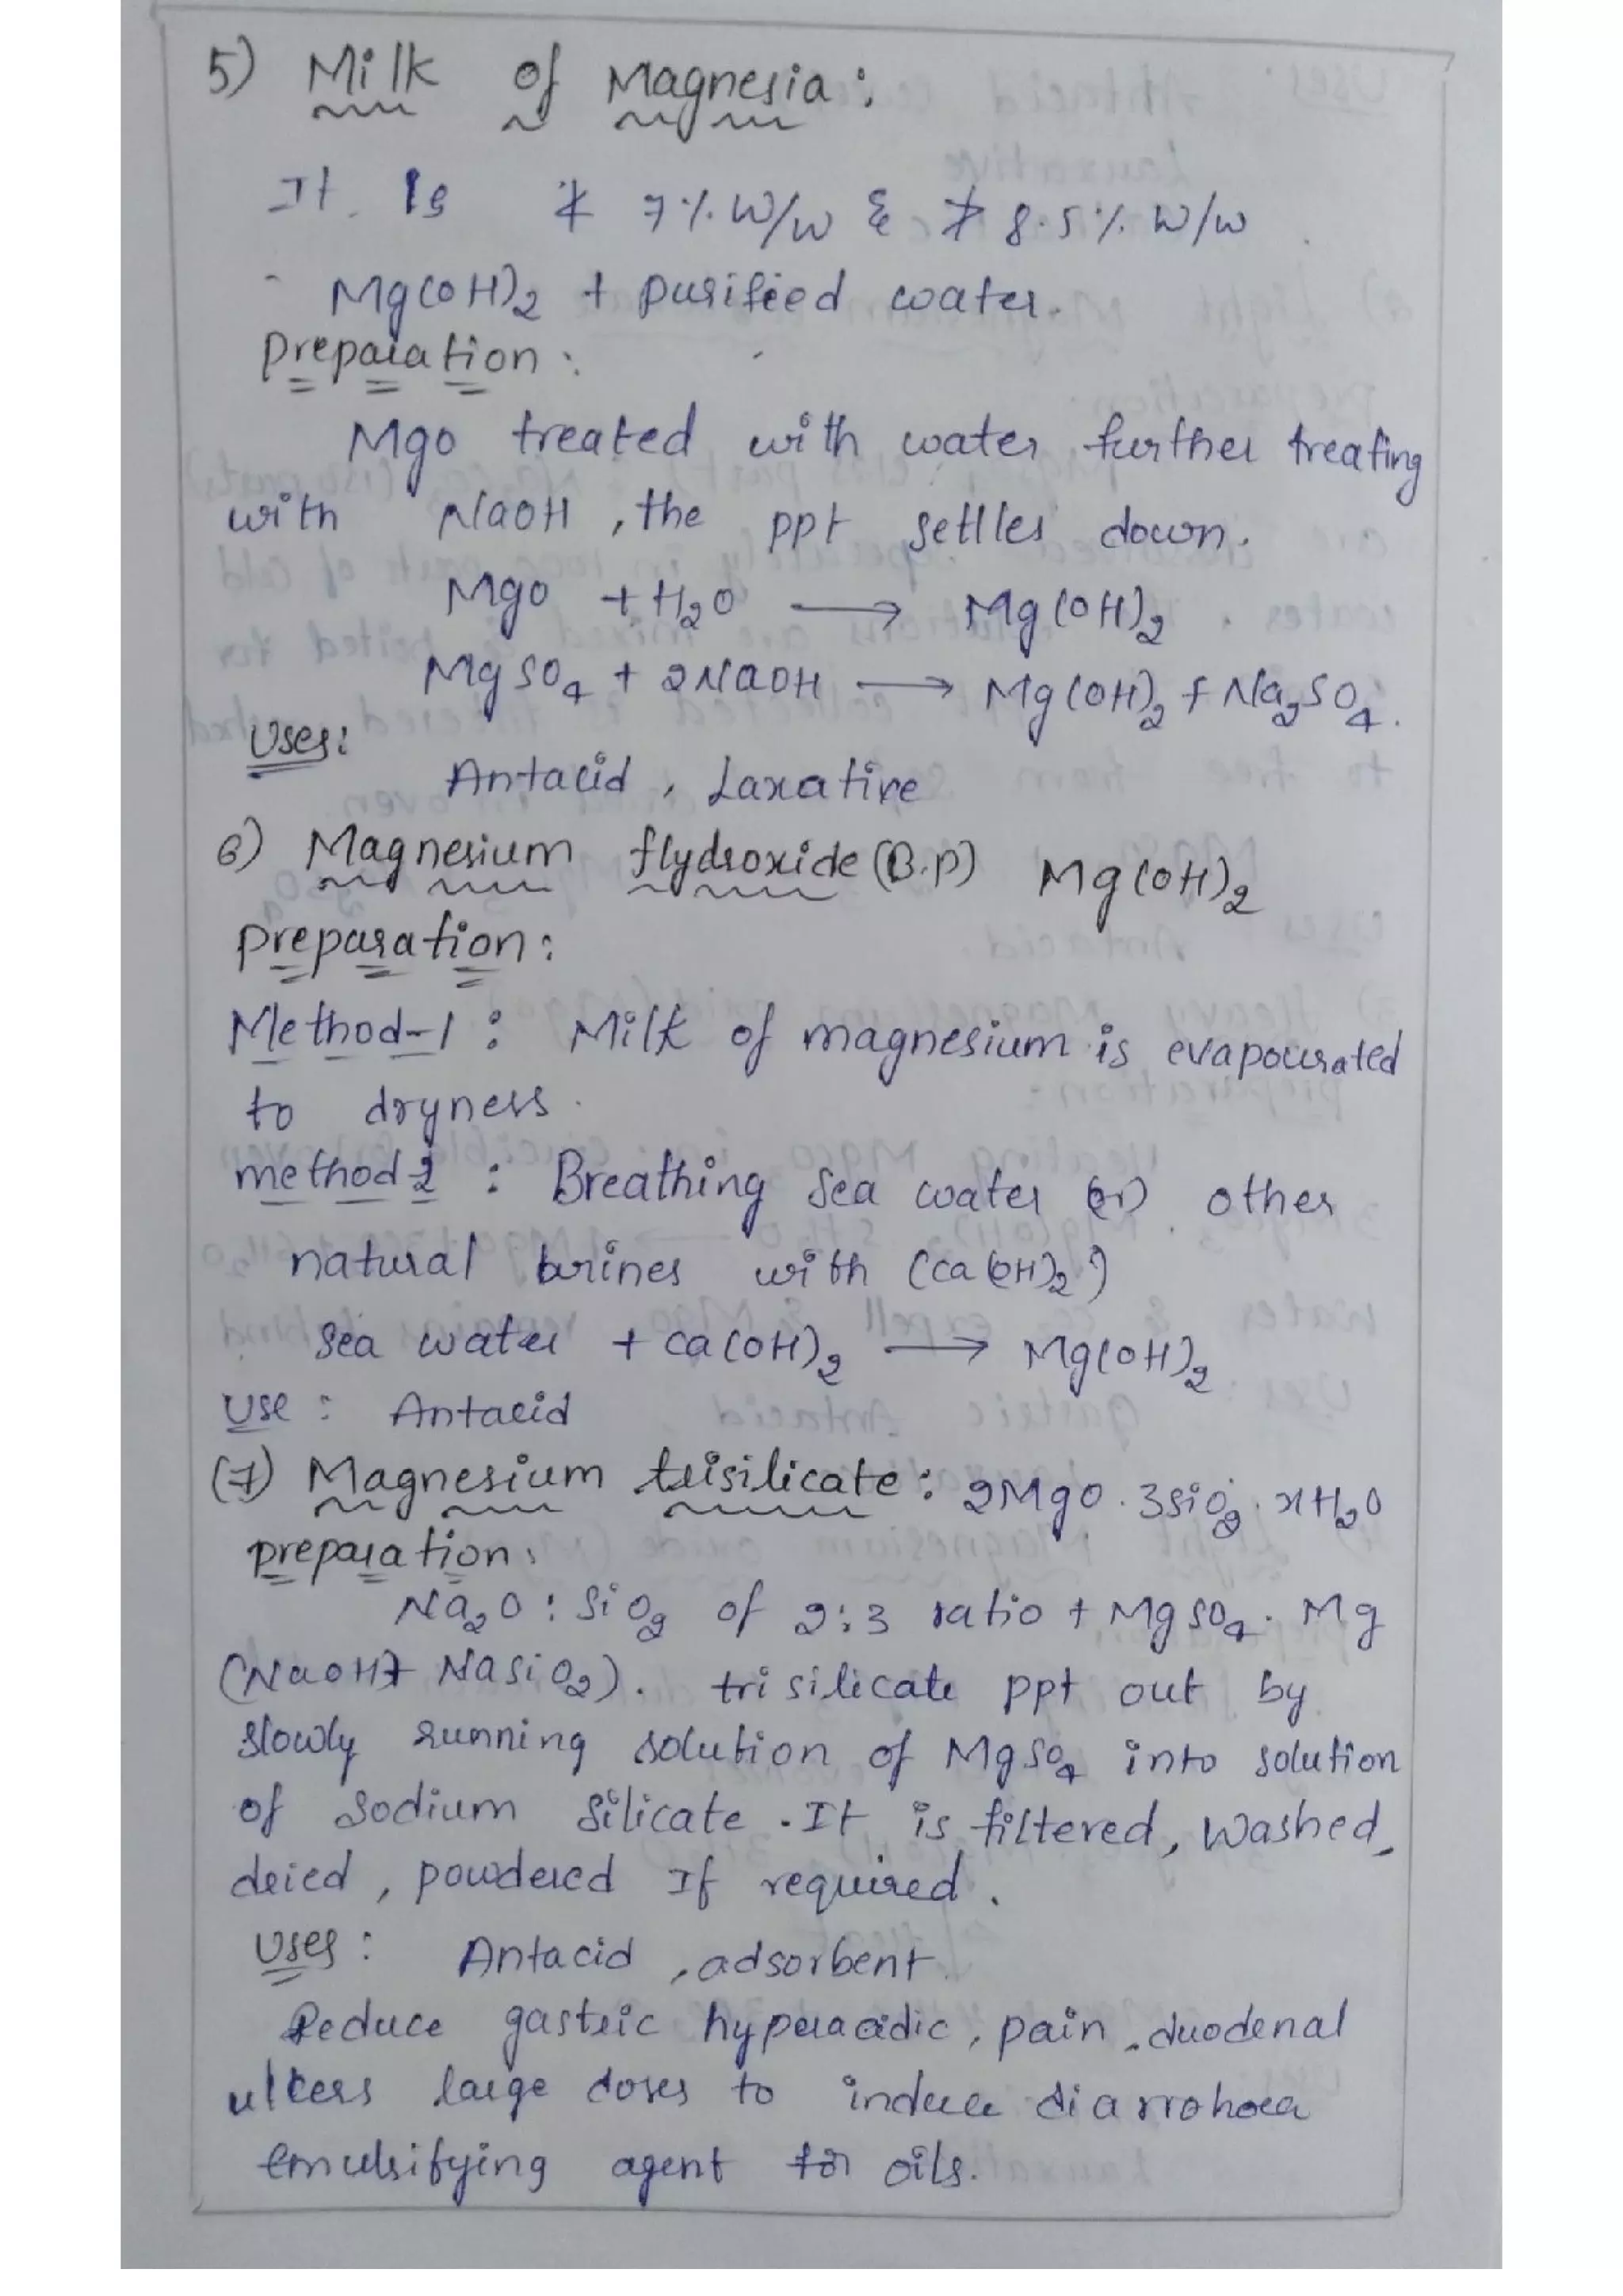 5) Milk of Magnesia:
It Is ≮ 7% W/W & ≯ 8.5% W/W
Mg(OH)₂ + purified water.
preparation:
Mgo treated with water further treating
with NaOH, the ppt settles down.
Mgo + H₂O ⟶ Mg(OH)₂
MgSO₄ + 2NaOH ⟶ Mg(OH)₂ + Na₂SO₄.
Uses:
Antacid, Laxative
6) Magnesium Hydroxide (B.P) Mg(OH)₂
preparation:
Method-1: Milk of magnesium is evapourated
to dryness.
method 2: Breathing Sea water (or) other
natural brines with (ca(OH)₂)
Sea water + ca(OH)₂ ⟶ Mg(OH)₂
Use: Antacid
(7) Magnesium trisilicate: 2Mgo. 3sio₂. xH₂O
preparation:
Na₂O : SiO₂ of 2:3 ratio + MgSO₄. Mg
(NaOH + NaSiO₂). trisilicate ppt out by
slowly running solution of MgSO₄ into solution
of sodium silicate. It is filtered, washed,
dried, powdered If required.
Uses: Antacid, adsorbent
Reduce gastric hyperacidic, pain, duodenal
ulcers large doses to induce diarrohoea
emulsifying agent for oils.